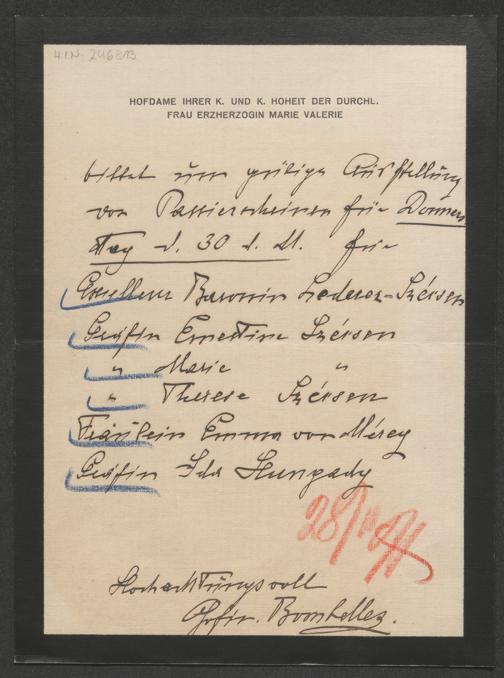 HIN-246813
HOFDAME IHRER K. UND K. HOHEIT DER DURCHL.
FRAU ERZHERZOGIN MARIE VALERIE
bittet um gütige Ausstellung
von Passierscheinen für Donners
tag d. 30 d. M. für
Excellenz Baronin Lederer-Széssen
Gräfin Ernestine Széssen
" Marie "
" Therese Széssen
Fräulein Emma von Mérey
Gräfin Ida Hunyady
28/
Hochachtungsvoll
Gräfin. Bombelles.